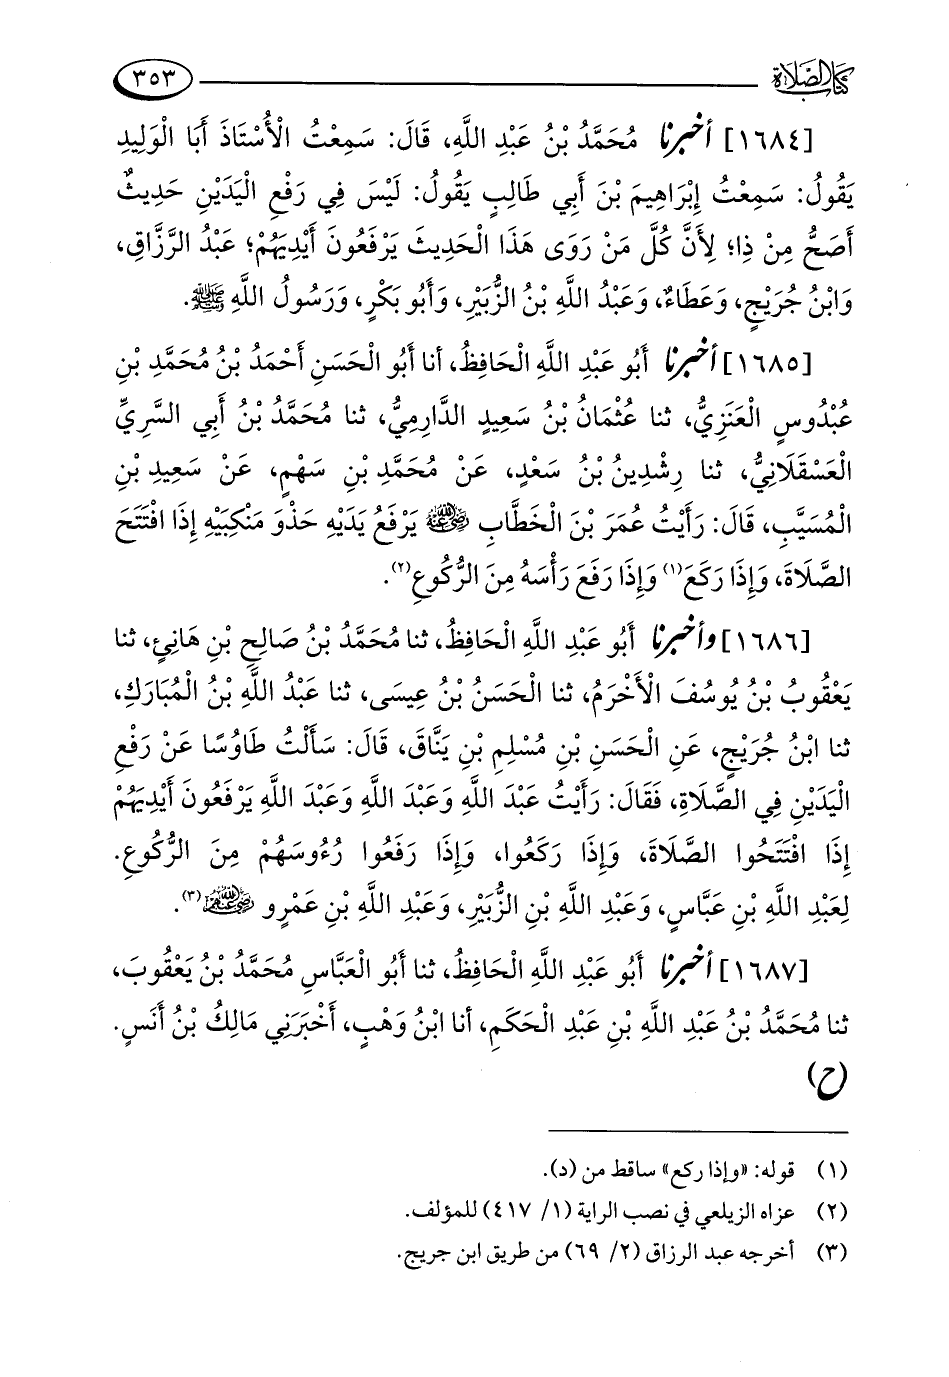 كتاب الصلاة ٣٥٣
[١٦٨٤] أخبرنا مُحَمَّدُ بْنُ عَبْدِ اللَّهِ، قَالَ: سَمِعْتُ الْأُسْتَاذَ أَبَا الْوَلِيدِ
يَقُولُ: سَمِعْتُ إِبْرَاهِيمَ بْنَ أَبِي طَالِبٍ يَقُولُ: لَيْسَ فِي رَفْعِ الْيَدَيْنِ حَدِيثٌ
أَصَحُّ مِنْ ذِا؛ لِأَنَّ كُلَّ مَنْ رَوَى هَذَا الْحَدِيثَ يَرْفَعُونَ أَيْدِيَهُمْ؛ عَبْدُ الرَّزَّاقِ،
وَابْنُ جُرَيْجٍ، وَعَطَاءٌ، وَعَبْدُ اللَّهِ بْنُ الزُّبَيْرِ، وَأَبُو بَكْرٍ، وَرَسُولُ اللَّهِ ﷺ.
[١٦٨٥] أخبرنا أَبُو عَبْدِ اللَّهِ الْحَافِظُ، أنا أَبُو الْحَسَنِ أَحْمَدُ بْنُ مُحَمَّدِ بْنِ
عُبْدُوسٍ الْعَنَزِيُّ، ثنا عُثْمَانُ بْنُ سَعِيدٍ الدَّارِمِيُّ، ثنا مُحَمَّدُ بْنُ أَبِي السَّرِيِّ
الْعَسْقَلَانِيُّ، ثنا رِشْدِينُ بْنُ سَعْدٍ، عَنْ مُحَمَّدِ بْنِ سَهْمٍ، عَنْ سَعِيدِ بْنِ
الْمُسَيَّبِ، قَالَ: رَأَيْتُ عُمَرَ بْنَ الْخَطَّابِ رضي الله عنه يَرْفَعُ يَدَيْهِ حَذْوَ مَنْكِبَيْهِ إِذَا افْتَتَحَ
الصَّلَاةَ، وَإِذَا رَكَعَ(١) وَإِذَا رَفَعَ رَأْسَهُ مِنَ الرُّكُوعِ(٢).
[١٦٨٦] وأخبرنا أَبُو عَبْدِ اللَّهِ الْحَافِظُ، ثنا مُحَمَّدُ بْنُ صَالِحِ بْنِ هَانِئٍ، ثنا
يَعْقُوبُ بْنُ يُوسُفَ الْأَخْرَمُ، ثنا الْحَسَنُ بْنُ عِيسَى، ثنا عَبْدُ اللَّهِ بْنُ الْمُبَارَكِ،
ثنا ابْنُ جُرَيْجٍ، عَنِ الْحَسَنِ بْنِ مُسْلِمِ بْنِ يَنَّاقَ، قَالَ: سَأَلْتُ طَاوُسًا عَنْ رَفْعِ
الْيَدَيْنِ فِي الصَّلَاةِ، فَقَالَ: رَأَيْتُ عَبْدَ اللَّهِ وَعَبْدَ اللَّهِ وَعَبْدَ اللَّهِ يَرْفَعُونَ أَيْدِيَهُمْ
إِذَا افْتَتَحُوا الصَّلَاةَ، وَإِذَا رَكَعُوا، وَإِذَا رَفَعُوا رُءُوسَهُمْ مِنَ الرُّكُوعِ.
لِعَبْدِ اللَّهِ بْنِ عَبَّاسٍ، وَعَبْدِ اللَّهِ بْنِ الزُّبَيْرِ، وَعَبْدِ اللَّهِ بْنِ عَمْرٍو رضي الله عنهم(٣).
[١٦٨٧] أخبرنا أَبُو عَبْدِ اللَّهِ الْحَافِظُ، ثنا أَبُو الْعَبَّاسِ مُحَمَّدُ بْنُ يَعْقُوبَ،
ثنا مُحَمَّدُ بْنُ عَبْدِ اللَّهِ بْنِ عَبْدِ الْحَكَمِ، أنا ابْنُ وَهْبٍ، أَخْبَرَنِي مَالِكُ بْنُ أَنَسٍ.
(ح)
(١) قوله: «وإذا ركع» ساقط من (د).
(٢) عزاه الزيلعي في نصب الراية (١/ ٤١٧) للمؤلف.
(٣) أخرجه عبد الرزاق (٢/ ٦٩) من طريق ابن جريج.